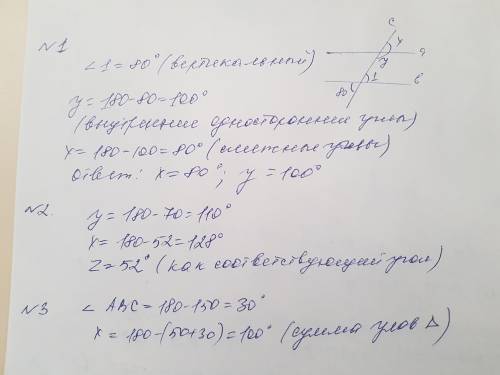 №1
∠1 = 80° (вертикальный)
y = 180-80 = 100°
(внутренние односторонние углы)
x = 180-100 = 80° (смежные углы)
Ответ: x = 80°; y = 100°
c
x
a
y
1
в
80
№2.
y = 180-70 = 110°
x = 180-52 = 128°
z = 52° (как соответствующий угол)
№3
∠ABC = 180-150 = 30°
x = 180-(50+30) = 100° (сумма углов Δ)